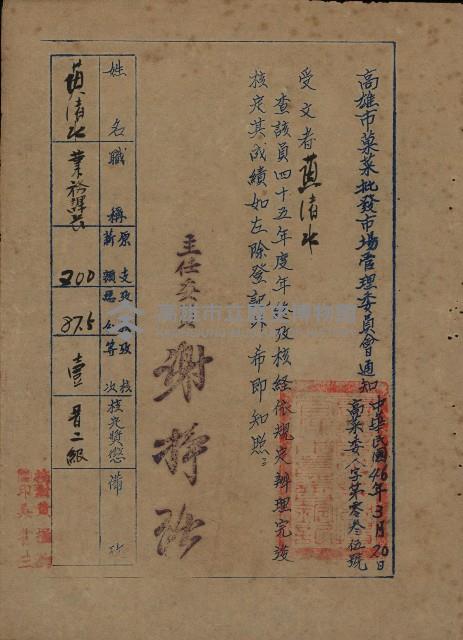 高雄市菓菜批發市場管理委員會通知
中華民國46年3月20日
高菓委人字第零叁伍號
受文者 黃清水
查該員四十五年度年終攷核經依規定辦理完竣
核定其成績如左除登記外希即知照
主任委員 謝掙
姓名 職稱 原支薪額 攷核總分 攷核等次 核定獎懲 備攷
黃清水 業務課長 200 87.5 壹 晋二級
高雄市立歷史博物館